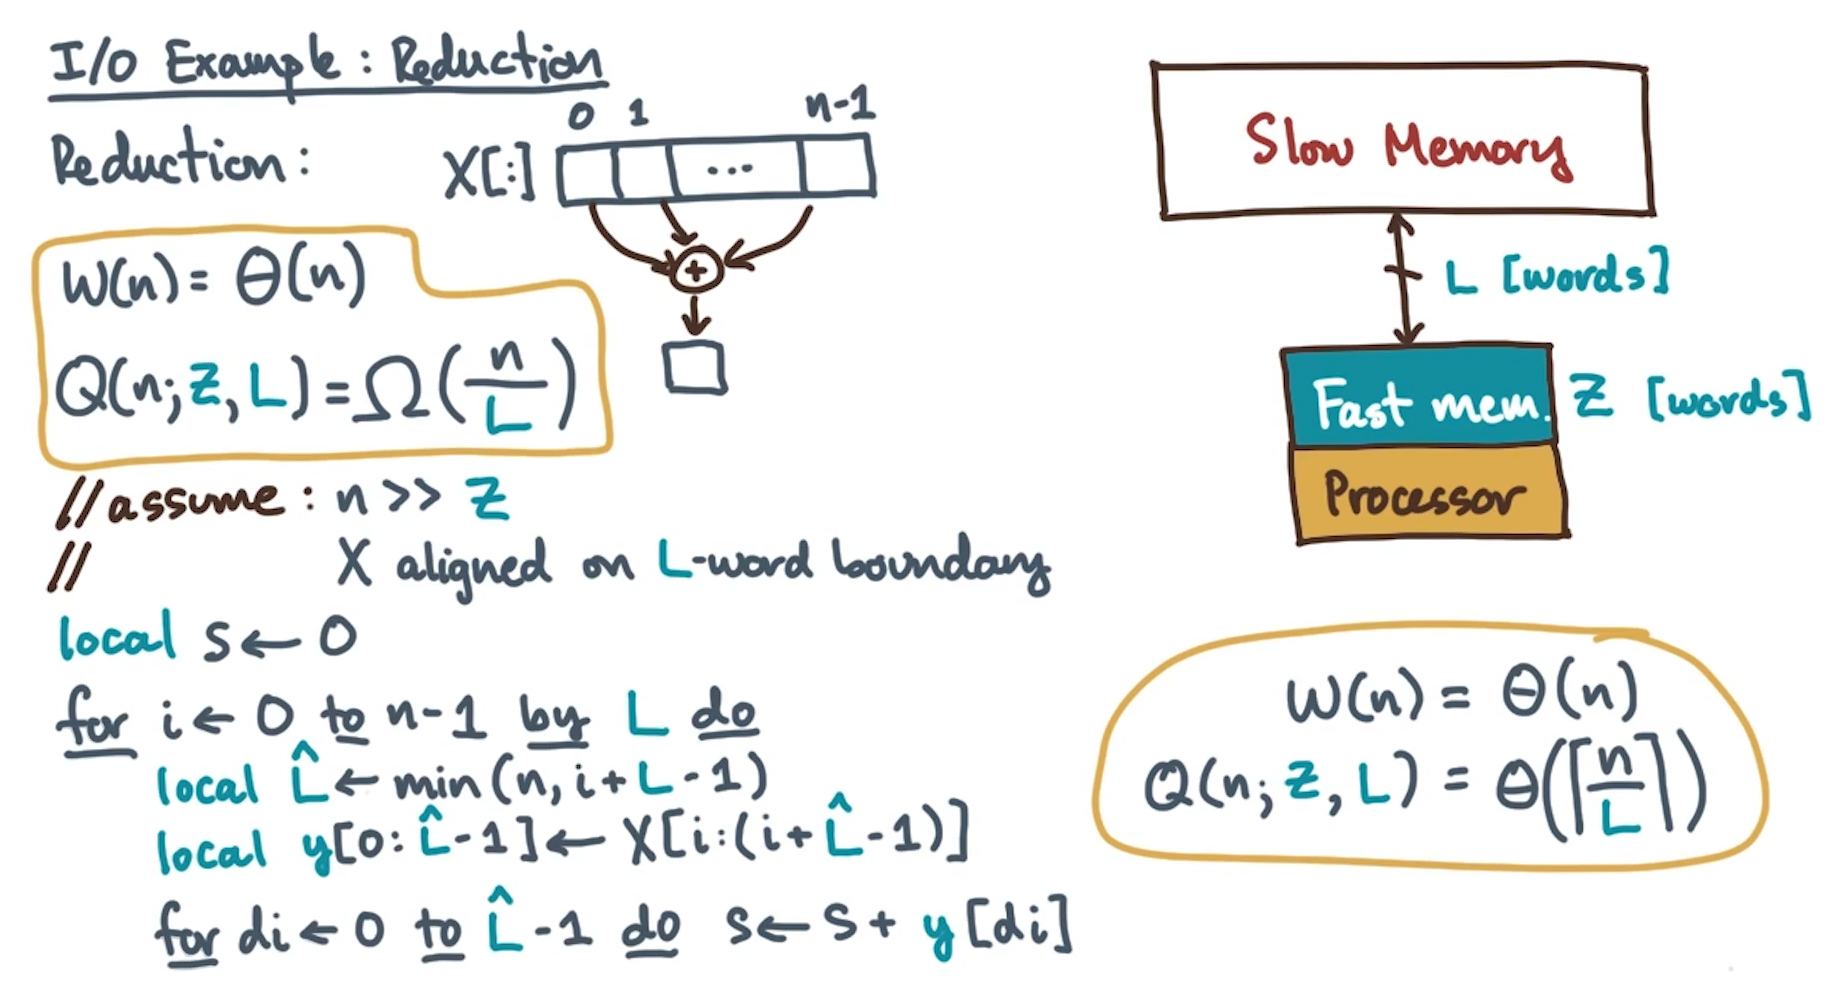 I/O Example: Reduction
0 1 n-1
Reduction: X[:] ...
+
W(n) = Θ(n)
Q(n; Z, L) = Ω(n/L)
//assume: n >> Z
// X aligned on L-word boundary
local s ← 0
for i ← 0 to n-1 by L do
local L̂ ← min(n, i+L-1)
local y[0:L̂-1] ← X[i:(i+L̂-1)]
for di ← 0 to L̂-1 do s ← s + y[di]
Slow Memory
L [words]
Fast mem. Z [words]
Processor
W(n) = Θ(n)
Q(n; Z, L) = Θ(⌈n/L⌉)